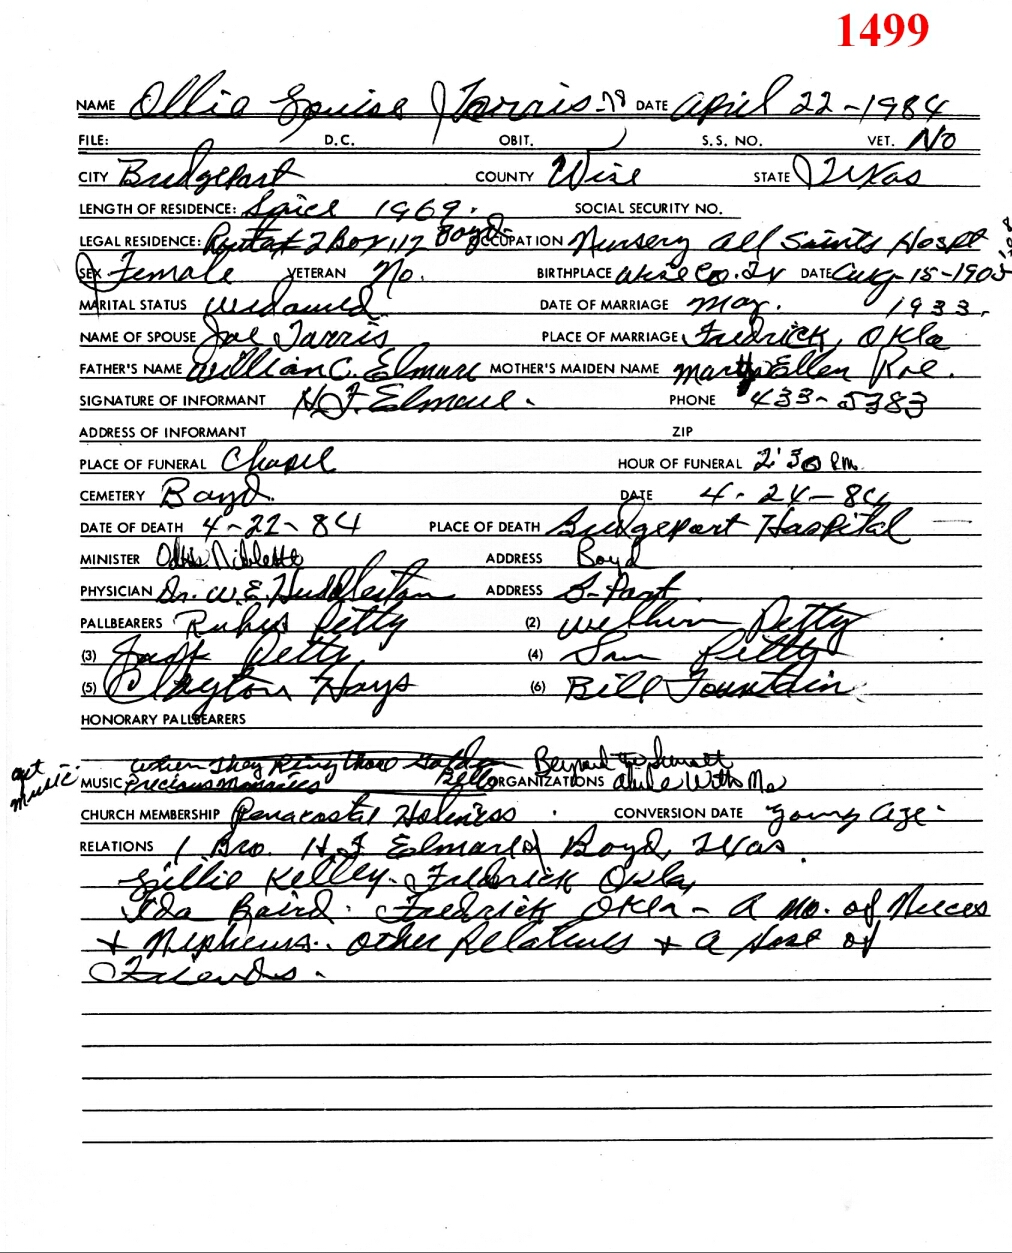 1499
NAME Ollie Louise Tarris 78 DATE April 22-1984
FILE: D.C. OBIT. S.S. NO. VET. No
CITY Bridgeport COUNTY Wise STATE Texas
LENGTH OF RESIDENCE: Since 1969. SOCIAL SECURITY NO.
LEGAL RESIDENCE: Route 2 Box 117 Boyd OCCUPATION Nursery All Saints Hospt
SEX Female VETERAN No. BIRTHPLACE Wise Co. Tx DATE Aug-15-1905
MARITAL STATUS Widowed DATE OF MARRIAGE May. 1933.
NAME OF SPOUSE Joe Tarris PLACE OF MARRIAGE Fredrick, Okla
FATHER'S NAME William C. Elmore MOTHER'S MAIDEN NAME Martha Ellen Roe.
SIGNATURE OF INFORMANT H.F. Elmore. PHONE 433-5383
ADDRESS OF INFORMANT ZIP
PLACE OF FUNERAL Chapel HOUR OF FUNERAL 2:30 P.M.
CEMETERY Boyd. DATE 4-24-84
DATE OF DEATH 4-22-84 PLACE OF DEATH Bridgeport Hospital
MINISTER Odis Niblette ADDRESS Boyd
PHYSICIAN Dr. W.E. Huddleston ADDRESS B-Port
PALLBEARERS Rufus Petty (2) William Petty
(3) Jack Petty (4) Sam Petty
(5) Clayton Hays (6) Bill Fountain
HONORARY PALLBEARERS
When They Ring Those Golden Bells Beyond the Sunset
get music MUSIC Precious Memories ORGANIZATIONS Abide With Me
CHURCH MEMBERSHIP Penacostal Holiness. CONVERSION DATE Young Age-
RELATIONS 1 Bro. H.F. Elmore of Boyd, Texas.
Lillie Kelley. Fredrick Okla,
Ida Baird. Fredrick Okla- A no. of Nieces
+ Nephews. other Relatives + A host of
Friends.